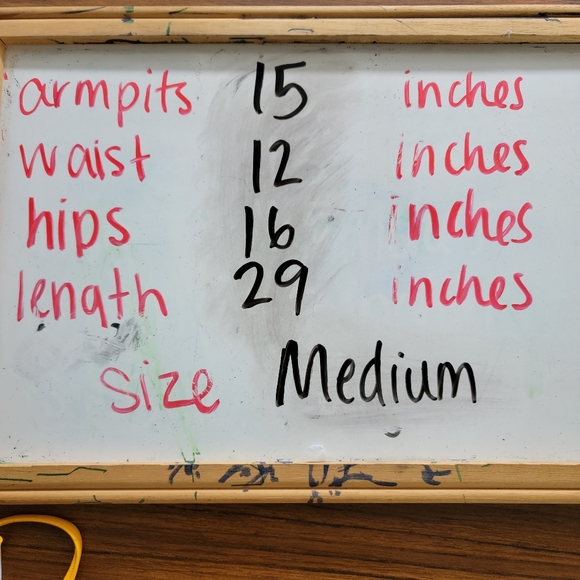 armpits 15 inches
waist 12 inches
hips 16 inches
length 29 inches
size Medium